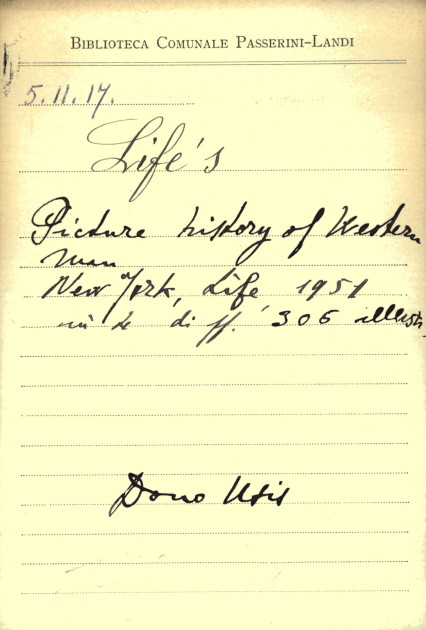 BIBLIOTECA COMUNALE PASSERINI-LANDI
5.11.17.
Life's
Picture history of Western
man
New York, Life 1951
in 4° di pp. 306 illustr.
Dono Usis